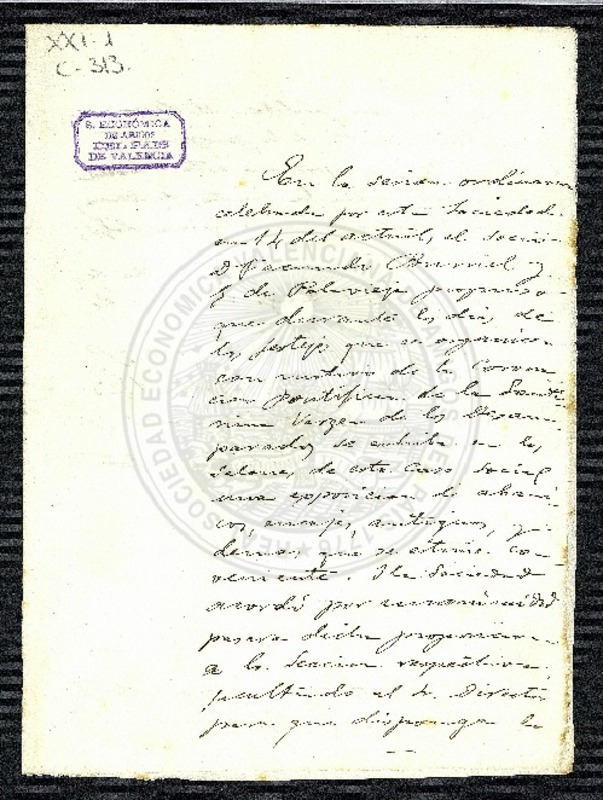 XXI-1
C-313.
S. ECONÓMICA
DE AMIGOS
DEL PAIS
DE VALENCIA
En la sesión ordinaria
celebrada por esta Sociedad
en 14 del actual, el Socio
D. Facundo Burriel y
G. de Polavieja propuso
que durante los días de
los festejos que se organicen
con motivo de la Corona
cion pontificia de la Santi
sima Virgen de los Desam
parados se exhiba en los
salones de esta Casa Social
una exposicion de abani
cos, encajes, antiguos, y
demas que se estime con
veniente. I la Sociedad
acordó por unanimidad
pasara dicha proposicion
a la Seccion respectiva,
facultando al Sr. Director
para que disponga lo
REAL SOCIEDAD ECONOMICA VALENCIANA DE AMIGOS DEL PAIS 1776